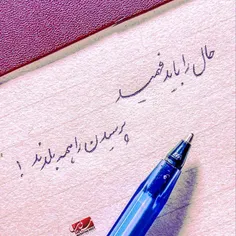 حال را باید فهمید
پرسیدن را همه بلدند !